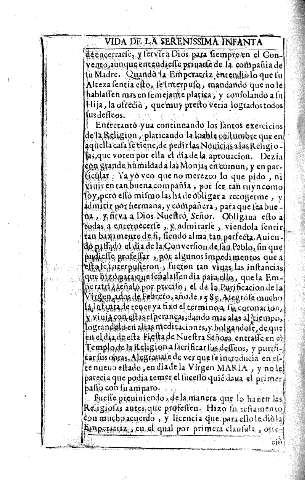 VIDA DE LA SERENISSIMA INFANTA
de encerrarse, y servir a Dios para siempre en el Con-
vento, aunque entendiesse privarse de la compañia de
su Madre. Quando la Emperatriz entendiò lo que su
Alteza sentia esto, se interpuso, mandando que no le
hablassen mas en semejante platica, y consolando a su
Hija, la ofreciò, que muy presto veria logrados todos
sus desseos.
Entretanto yva continuando los santos exercicios
de la Religion, platicando la loable costumbre que en
aquella casa se tiene, de pedir las Novicias a las Religio-
sas, que voten por ella el dia de la aprovacion. Dezia
con grande humildad a las Monjas en comun, y en par-
ticular: Ya yo veo que no merezco lo que pido, ni
vivir en tan buena compañia, por ser tan ruyn como
soy, pero esso mismo las ha de obligar a recogerme, y
admitir por hermana, y compañera, para que sea bue-
na, y sirva a Dios Nuestro Señor. Obligava esto a
todas a enternecerse, y admirarse, viendola sentir
tan baxamente de si, siendo alma tan perfecta. Avien-
do passado el dia de la Conversion de san Pablo, sin que
pudiesse professar, por algunos impedimentos que a
esto se interpusieron, fueron tan vivas las instancias
que hizo para que señalassen dia para ello, que la Em-
peratriz señalò por preciso, el dia de la Purificacion de la
Virgen, a dos de Febrero, año de 1585. Alegròse mucho
la Infanta de ver que yà fixo el termino a su coronacion,
y vivia con estas esperanças, dando mas alas al tiempo,
logrando en altas meditaciones, y holgandose, de que
en el dia de esta Fiesta de Nuestra Señora, entrasse en el
Templo de la Religion a sacrificar sus desseos, y purifi-
car sus obras. Alegravase de ver que se introducia en es-
te nuevo estado, en dia de la Virgen MARIA, y no le
parecia que podia temer el sucesso quien dava el primer
passo con su amparo.
Fuesse previniendo, de la manera que lo hazen las
Religiosas antes que professen. Hizo su testamento
con mucho acuerdo, y licencia que para ello le diò la
Emperatriz, en el qual por primera clausula, otor-